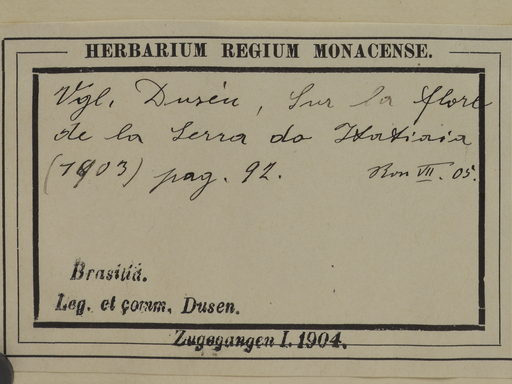 HERBARIUM REGIUM MONACENSE.
Vgl. Dusén, Sur la flore
de la Serra do Itatiaia
(1903) pag. 92. Ron VII. 05.
Brasilia.
Leg. et comm. Dusen.
Zugegangen I. 1904.